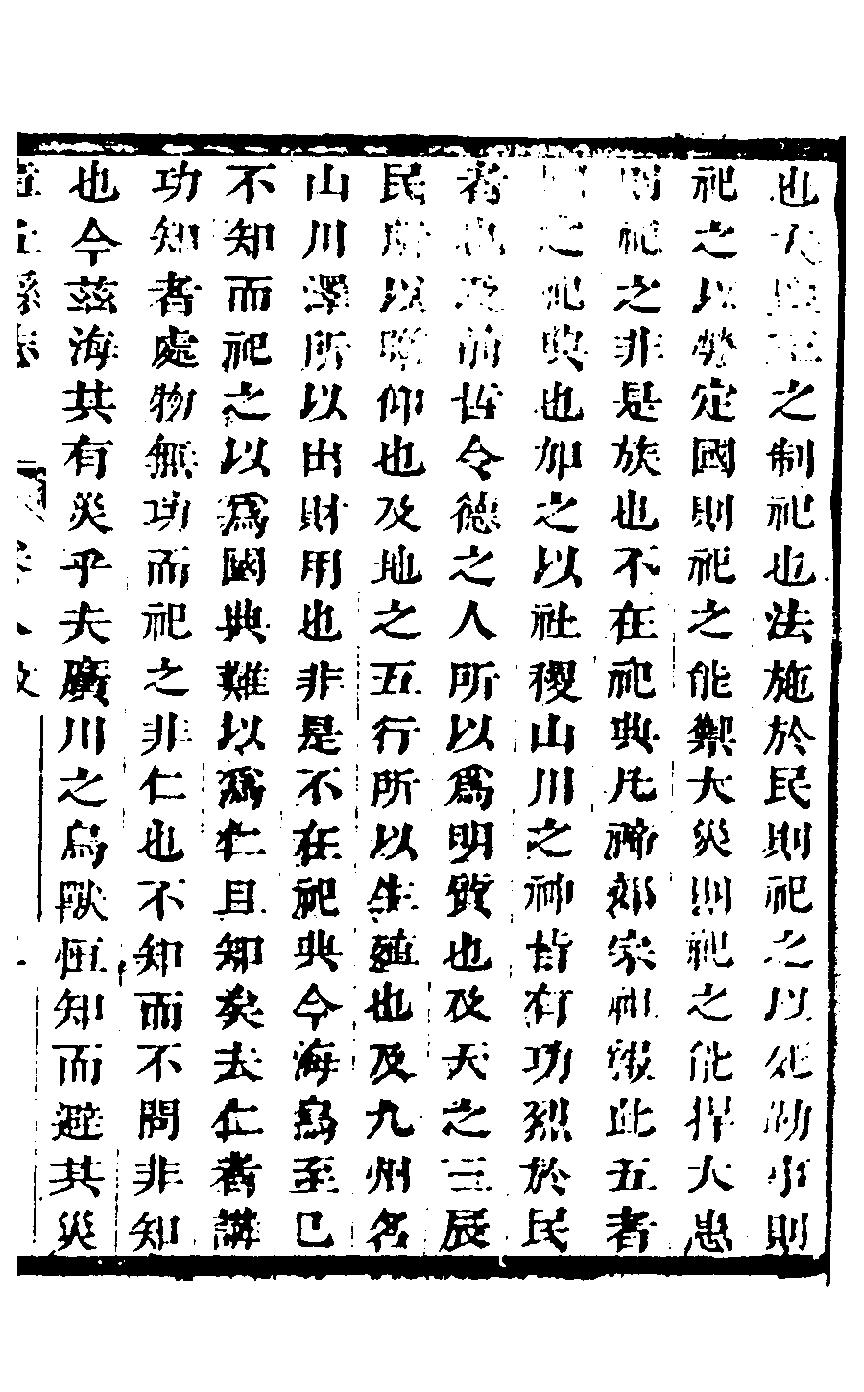 也夫聖王之制祀也法施於民則祀之以死勤事則
祀之以勞定國則祀之能禦大災則祀之能捍大患
則祀之非是族也不在祀典凡禘郊宗祖報此五者
之祀典也加之以社稷山川之神皆有功烈於民
者也及前哲令德之人所以爲明質也及天之三辰
民所以瞻仰也及地之五行所以生殖也及九州名
山川澤所以出財用也非是不在祀典今海鳥至已
不知而祀之以爲國典難以爲仁且知矣夫仁者講
功知者處物無功而祀之非仁也不知而不問非知
也今茲海其有災乎夫廣川之鳥獸恒知而避其災